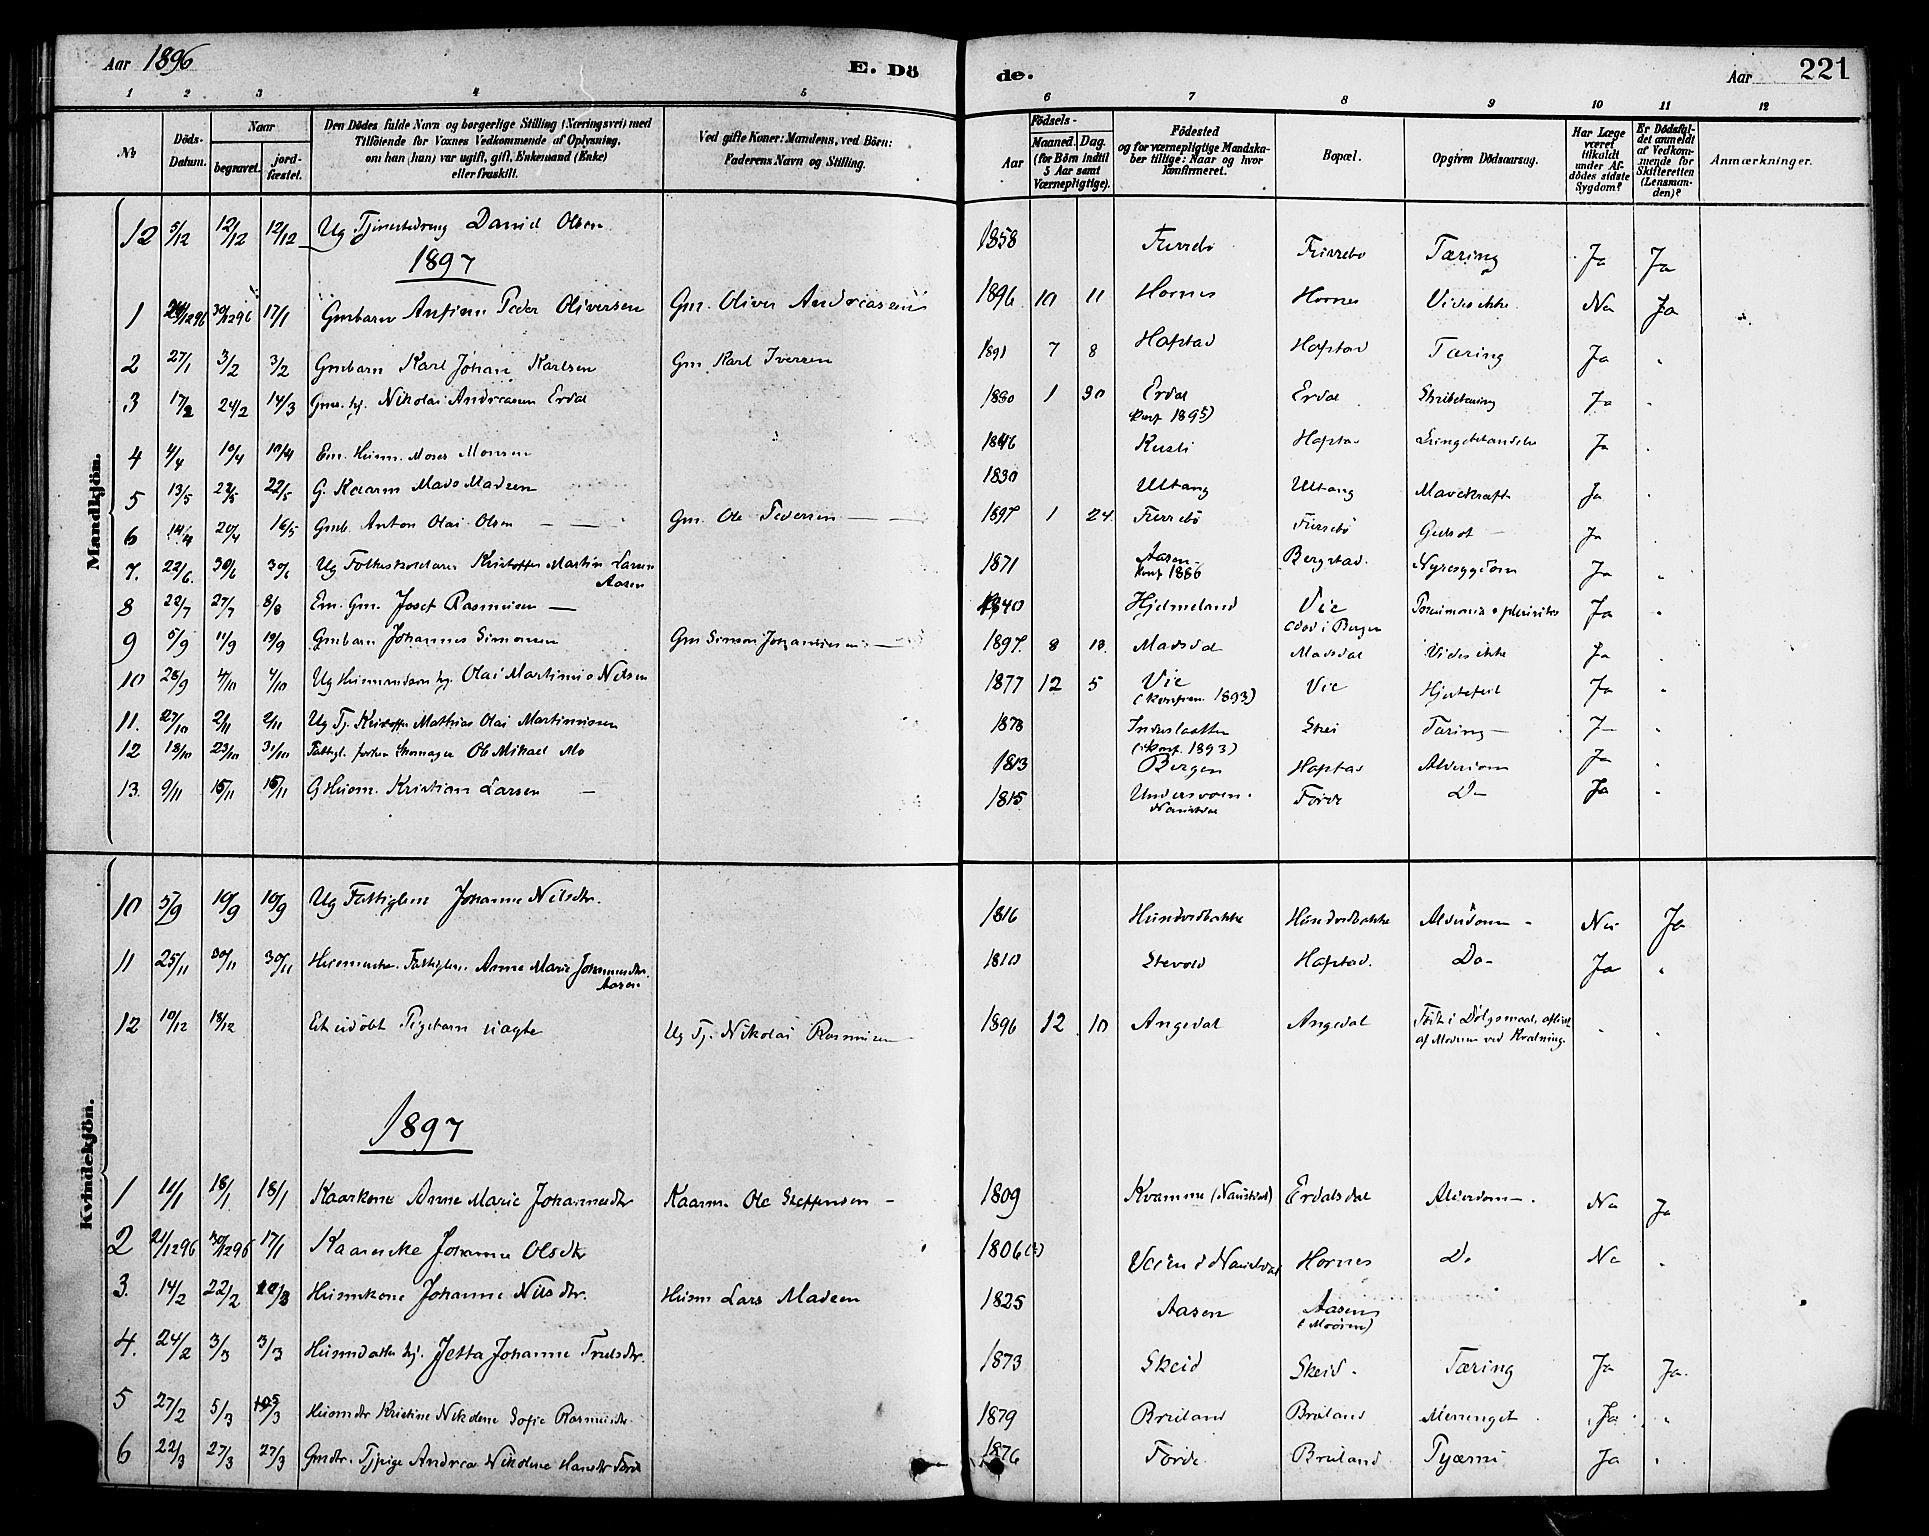 Aar 1896
E. Dö
de.
Aar
221
1 2 3 4 5 6 7 8 9 10 11 12
No
Döds-Datum.
Naar
begravet.
jord-fæstet.
Den Dödes fulde Navn og borgerlige Stilling (Næringsvei) med
Tilföiende for Voxnes Vedkommende af Oplysning,
om han (hun) var ugift, gift, Enkemand (Enke)
eller fraskilt.
Ved gifte Koner: Mandens, ved Börn:
Faderens Navn og Stilling.
Födsels-
Aar
Maaned. Dag.
(for Börn indtil
5 Aar samt
Værnepligtige).
Födested
og for værnepligtige Mandska-
ber tillige: Naar og hvor
konfirmeret.
Bopæl.
Opgiven Dödsaarsag.
Har Læge
været
tilkaldt
under Af-
dödes sidste
Sygdom?
Er Dödsfal-
det anmeldt
af Vedkom-
mende for
Skifteretten
(Lensman-
den)?
Anmærkninger.
Mandkjön.
12 5/12 12/12 12/12 Ug Tjenestedreng David Olsen 1858 Furrebö Furrebö Tæring Ja Ja
1897
1 30/1296 17/1 Gmbarn Peder Oliversen Gm. Oliver Andreassen 1896 10 11 Hornes Hornes Vides ikke Ne Ja
2 27/1 3/2 3/2 Gmbarn Karl Johan Karlsen Gm. Karl Iversen 1891 7 8 Hafstad Hafstad Tæring Ja "
3 17/2 24/2 14/3 Gms. hj. Nikolai Andreasen Erdal 1880 1 30 Erdal Erdal Ja "
Konf 1895)
4 4/4 10/4 10/4 Em. Husm. Moses Monsen 1846 Hafstad Ja "
5 13/5 22/5 22/5 G. Kaarm Mads Madsen 1830 Ultang Ultang Mavekræft Ja "
6 14/4 20/4 16/5 Gmb. Anton Olai Olsen — — Gm. Ole Pedersen — — 1897 1 24 Furrebö Furrebö Gulsot — Ja "
7. 22/6 30/6 30/6 Ug Kristoffer Martin Larsen 1871 Aasen Bergstad. Nyresygdom Ja "
Aasen
Konf 1886
8 22/7 27/7 8/8 Em. Gm. Josef Rasmusen — 1840 Hjelmeland Vie Pneumonia o pleuritis Ja "
(död i Bergen
9 5/9 11/9 19/9 Gmbarn Johannes Simonsen Gm Simon Johannesen — 1897 8 10 Madsdal Madsdal Vides ikke Ja "
10 28/9 4/10 4/10 Ug Husmandssn hj. Olai Martinius Nilsen 1877 12 5 Vie Vie Hjertefeil Ja "
(konfirm. 1893)
11. 27/10 2/11 2/11 Ug Tj. Kristoffer Mathias Olai Martinusen 1878 Inderslaatten Skei Tæring — J— "
(Konf. 1893)
12 18/10 23/10 31/10 Fattigl. forhen Skomager Ole Mikael Mo 1813 Bergen Hafstad Alderdom Ja "
13. 9/11 15/11 15/11 G Husm. Kristian Larsen — 1815 Förde D— Ja "
Naustdal
Kvindekjön.
10 5/9 10/9 10/9 Ug Fattiglem Johanne Nilsdtr. 1816 Hundvedbakke Hundvedbakke Alderdom — Nei Ja
11 25/11 30/11 30/11 Husmenke. Fattiglem. Anne Marie Johannesdtr. 1810 Stevold Hafstad. Do— Ja "
Aasen
12 10/12 18/12 Et udöbt Pigebarn uægte Ug Tj. Nikolai Rasmusen 1896 12 10 Angedal Angedal Födt i Dölgsmaal, aflivet " "
af Moderen ved Kvælning.
1897
1 11/1 18/1 18/1 Kaarkone Anne Marie Johannesdtr Kaarm. Ole Steffensen — 1809 Kvamme (Naustdal) Erdalsdal Alderdom —. Ne Ja
2 21/1296 30/1296 17/1 Kaarenke Johanne Olsdtr 1806 (?) Veien i Naustdal Hornes Do Ne "
3. 14/2 22/2 Husmkone Johanne Nilsdtr. Husm Lars Madsen 1825 Aasen Aasen
(Moören)
4. 24/2 3/3 3/3 Husmdatter hj. Jetta Johanne Trulsdtr. 1873 Skeid Skeid. Tæring Ja Ja.
5 27/2 5/3 Husmdtr Kristine Nikoline Sofie Rasmusdtr. 1879 Bruland Bruland Meninget Ja "
6 22/3 27/3 27/3 Gmdtr. Tjpige Andrea Nikoline Hansdtr Förde 1876 Förde Bruland Ja "